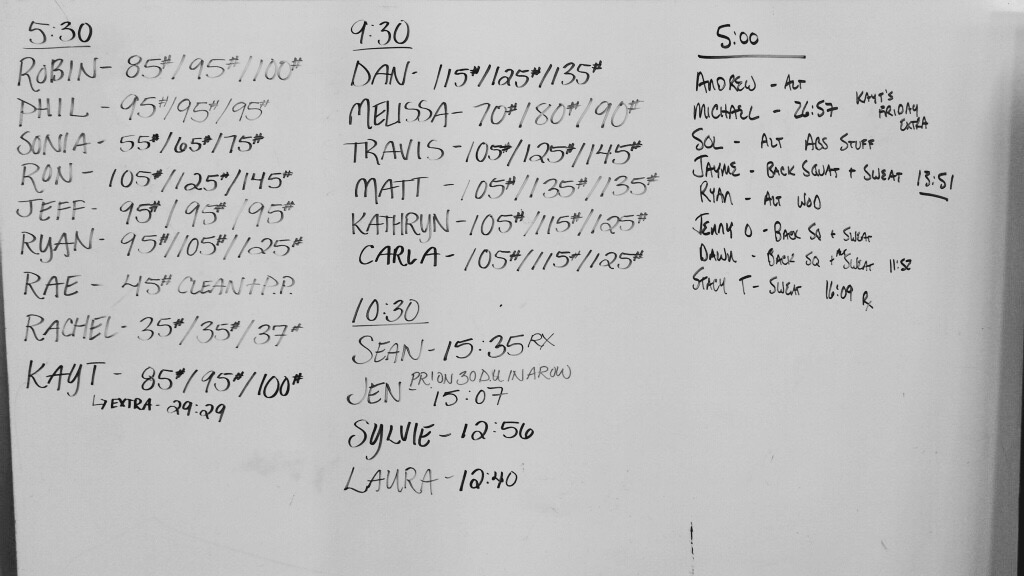 5:30
ROBIN- 85#/95#/100#
PHIL - 95#/95#/95#
SONIA - 55#/65#/75#
RON - 105#/125#/145#
JEFF- 95#/95#/95#
RYAN- 95#/105#/125#
RAE - 45# CLEAN+P.P.
RACHEL- 35#/35#/37#
KAYT - 85#/95#/100#
↳ EXTRA- 29:29
9:30
DAN- 115#/125#/135#
MELISSA- 70#/80#/90#
TRAVIS -105#/125#/145#
MATT -105#/135#/135#
KATHRYN-105#/115#/125#
CARLA- 105#/115#/125#
10:30
SEAN- 15:35 RX
PR! ON 30 D.U. IN A ROW
JEN 15:07
SYLVIE- 12:56
LAURA - 12:40
5:00
ANDREW - ALT
MICHAEL - 26:57 KAYT'S FRIDAY EXTRA
SOL - ALT ABS STUFF
JAYME - BACK SQUAT + SWEAT 13:51
RYAN - ALT WOD
JENNY O - BACK SQ + SWEAT
DAWN - BACK SQ + SWEAT 11:52
STACY T - SWEAT 16:09 Rx